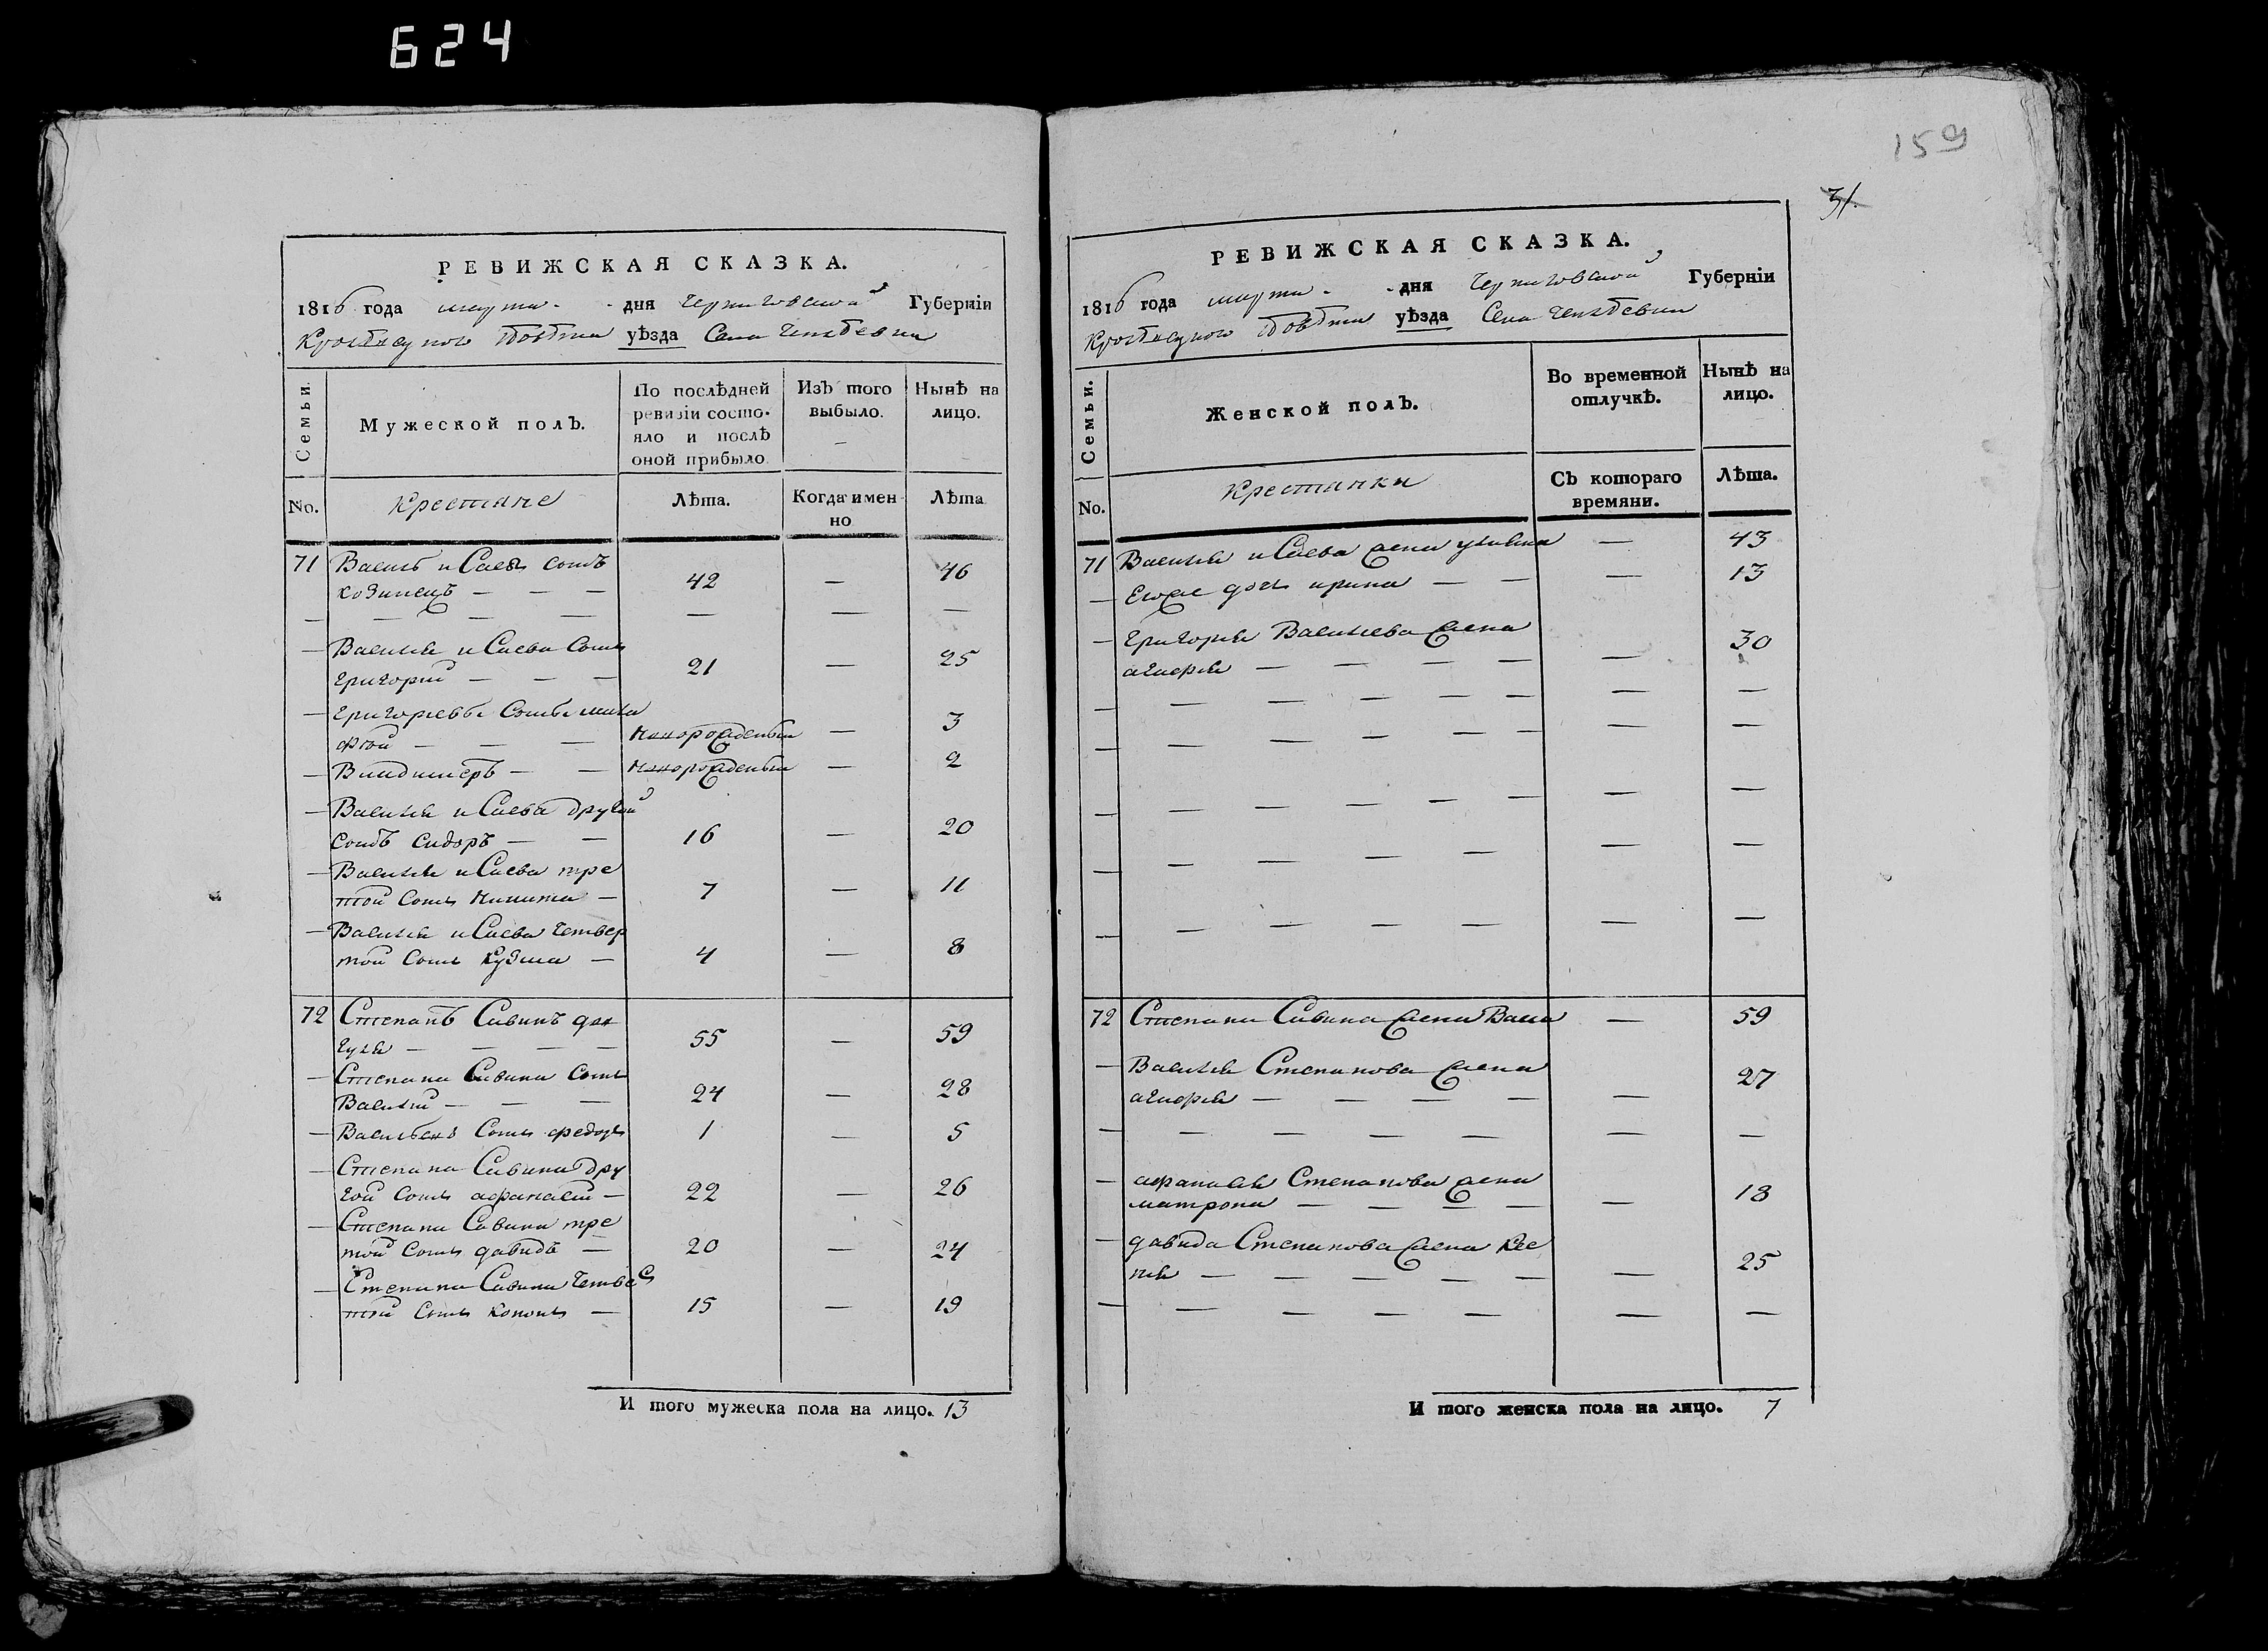 624
159
31.
РЕВИЖСКАЯ СКАЗКА.
1816 года марта - дня Черниговской Губерніи
повѣта уѣзда Села
Семьи.
Мужеской полъ.
По послѣдней ревизіи состо-
яло и послѣ
оной прибыло.
Изъ того
выбыло.
Нынѣ на
лицо.
No.
Крестяне
Лѣта.
Когда имен
но
Лѣта
71 Василь Исаевъ сынъ
42 — 46
— — — —
Василія Исаева сынъ
Григорій — — — 21 — 25
Григорьевы сыны мина
фтой — — — новорожденый — 3
Владимеръ — — новорожденый — 2
Василія Исаева другой
сынъ сидоръ — — 16 — 20
Василія Исаева тре
той сынъ Никита — 7 — 11
Василія Исаева четвер
той сынъ Кузма — 4 — 8
72 Степанъ Савинъ
— — — — 55 — 59
Степана Савина сынъ
Василій — — — 24 — 28
Васильевъ сынъ федоръ 1 — 5
Степана Савина дру
гой сынъ афанасій — 22 — 26
Степана Савина тре
той сынъ давидъ — 20 — 24
Степана Савина четвер
той сынъ кононъ — 15 — 19
И того мужеска пола на лицо. 13
РЕВИЖСКАЯ СКАЗКА.
1816 года марта - дня Черниговской Губерніи
повѣта уѣзда Села
Семьи.
Женской полъ.
Во временной
отлучкѣ.
Нынѣ на
лицо.
No.
Крестянки
Съ котораго
времяни.
Лѣта.
71 Василія Исаева жена улияна — 43
Егоже дочь ирина — — — 13
Григорія Васильева жена
агафия — — — — — 30
— — — — — — —
— — — — — — —
— — — — — — —
— — — — — — —
— — — — — — —
72 Степана Савина жена Васса — 59
Василія Степанова жена
агафия — — — — — 27
— — — — — — —
афанасія Степанова жена
матрона — — — — — 18
давида Степанова жена Ксе
ния — — — — — — 25
— — — — — — —
И того женска пола на лицо. 7